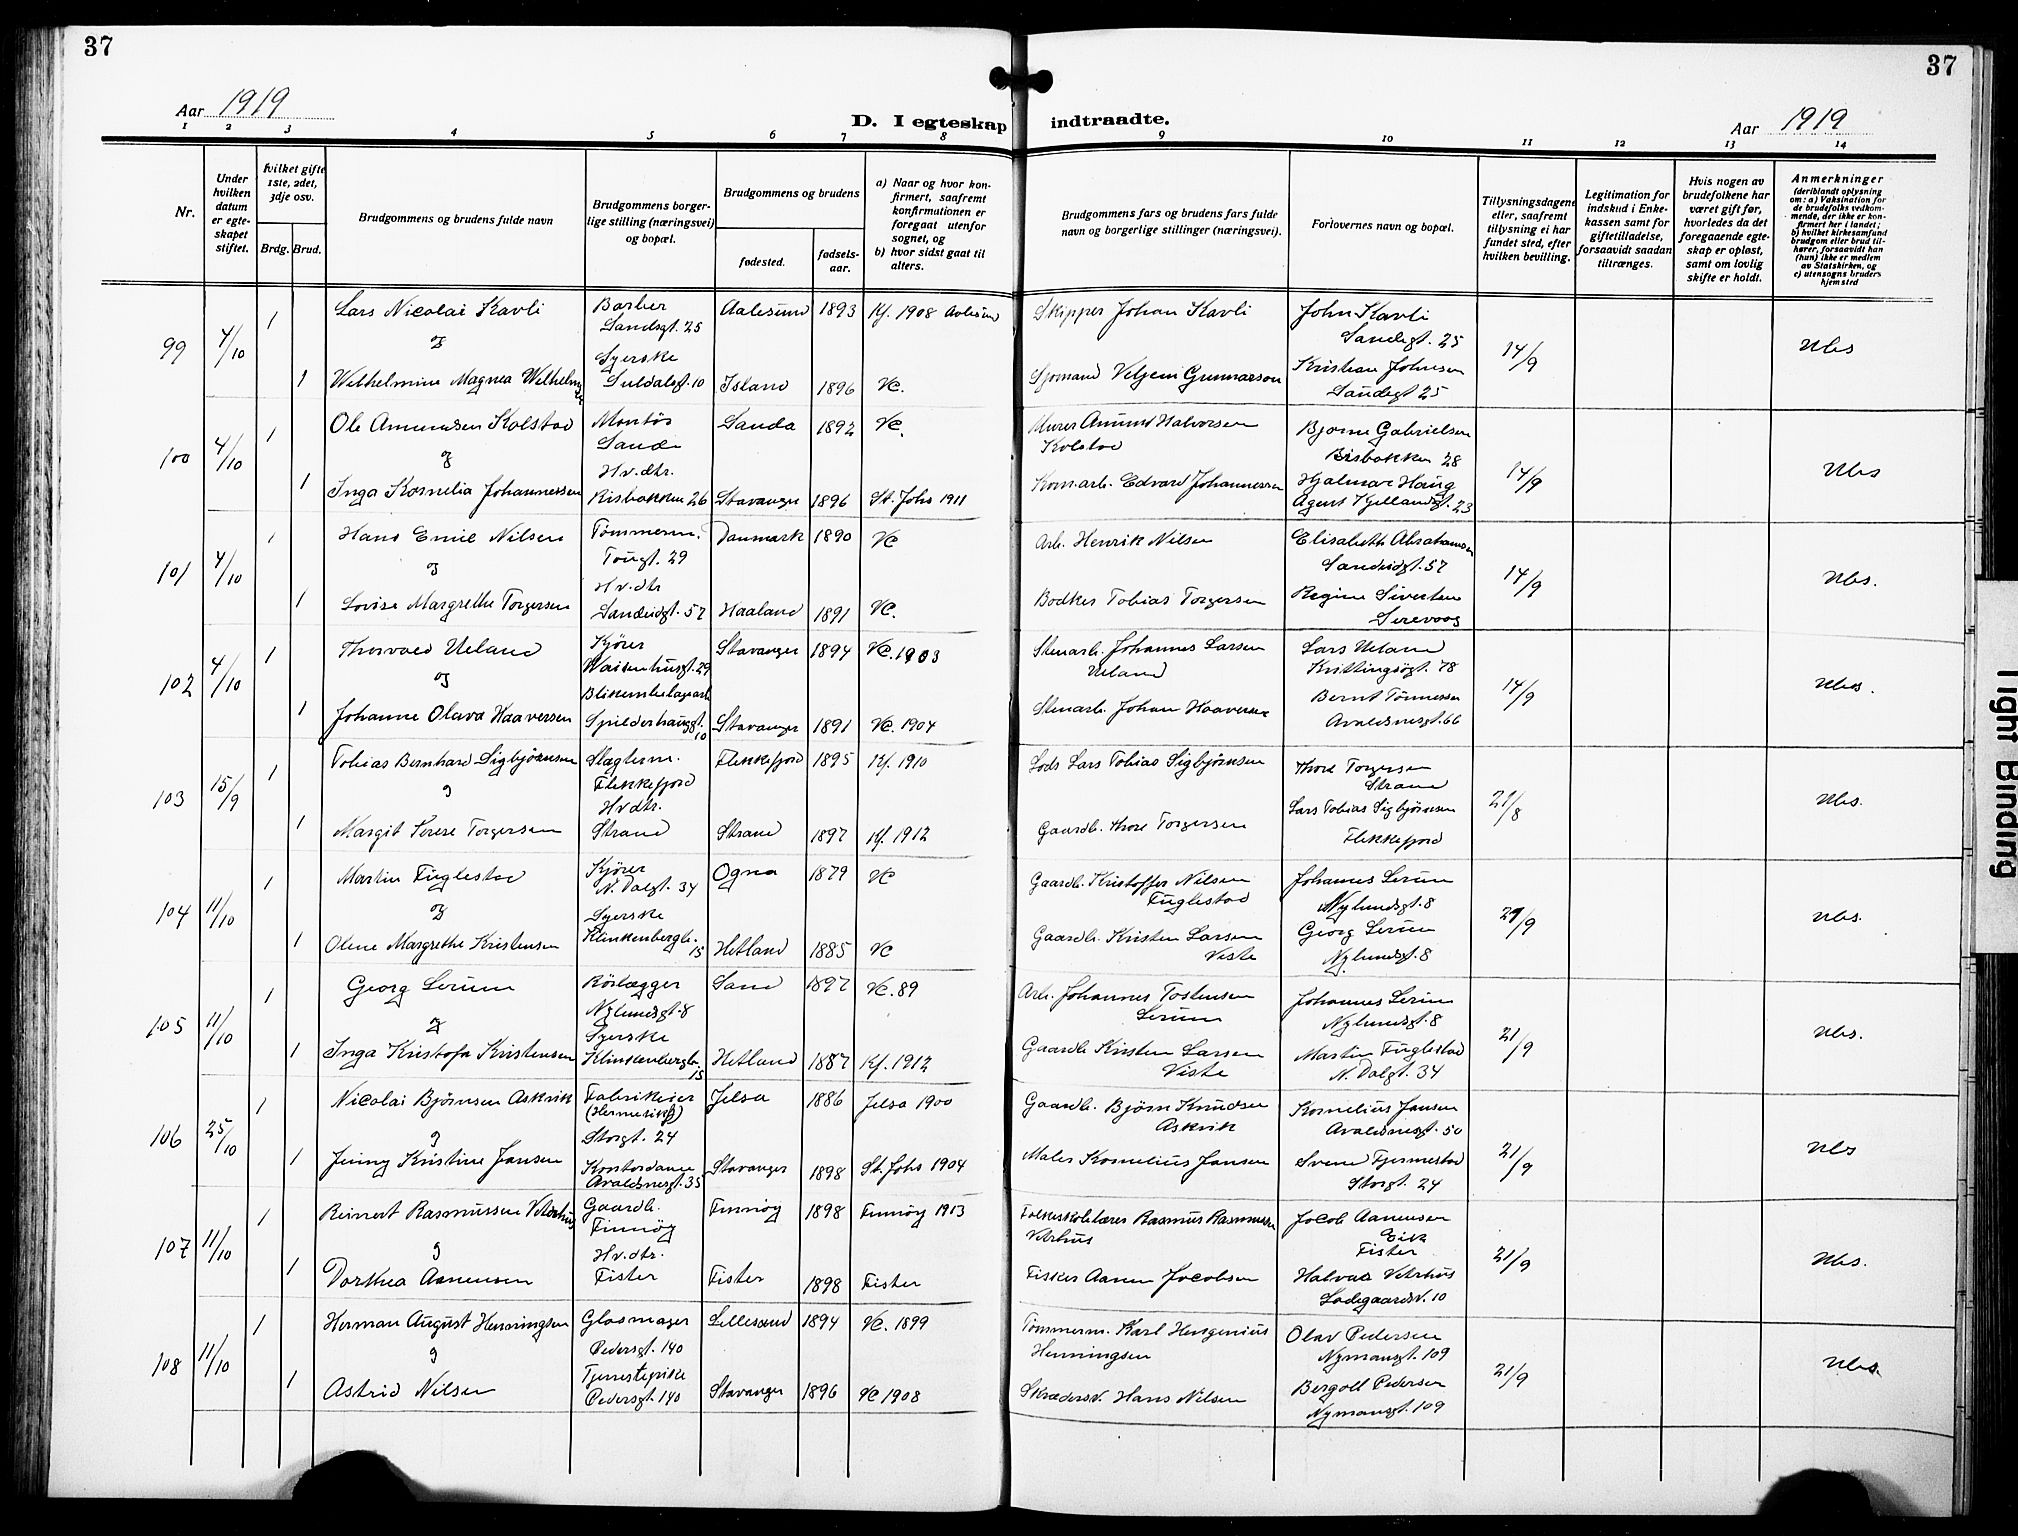 37
37
Aar 1919
D. I egteskap indtraadte.
Aar 1919
1 2 3 4 5 6 7 8 9 10 11 12 13 14
Nr.
Under hvilken datum er egteskapet stiftet.
hvilket gifte 1ste, 2det, 3dje osv.
Brdg. Brud.
Brudgommens og brudens fulde navn
Brudgommens borgerlige stilling (næringsvei) og bopæl.
Brudgommens og brudens
fødested.
fødselsaar.
a) Naar og hvor konfirmert, saafremt konfirmationen er foregaat utenfor sognet, og
b) hvor sidst gaat til alters.
Brudgommens fars og brudens fars fulde navn og borgerlige stillinger (næringsvei).
Forlovernes navn og bopæl.
Tillysningsdagene eller, saafremt tillysning ei har fundet sted, efter hvilken bevilling.
Legitimation for indskud i Enkekassen samt for giftetilladelse, forsaavidt saadan tiltrænges.
Hvis nogen av brudefolkene har været gift før, hvorledes da det foregaaende egteskap er opløst, samt om lovlig skifte er holdt.
Anmerkninger
(deriblandt oplysning om: a) Vaksination for de brudefolks vedkommende, der ikke er konfirmert her i landet;
b) hvilket kirkesamfund brudgom eller brud tilhører, forsaavidt han (hun) ikke er medlem av Statskirken, og
c) utensogns bruders hjemsted
99 4/10 1 Lars Nicolai Kavli Barber Sandsgt. 25 Aalesund 1893 Kf. 1908 Aalesund Skipper Johan Kavli John Kavli Sandsgt. 25 14/9 Ubs
og
1 Wilhelmine Magnea Syerske Suldalsgt. 10 Island 1896 Vc. Sjømand Gunnarson Kristian Johnsen Sandsgt 25
100 4/10 1 Ole Amundsen Kolstad Montør Sande Sanda 1892 Vc. Murer Amund Halvorsen Kolstad Bjarne Gabrielsen Bisbakken 28 14/9 Ubs
og
1 Inga Kornelia Johannessen Hv.dtr. Risbakken 26 Stavanger 1896 St. Johs 1911 Edvard Johannessen Hjalmar Haug Agent Kjellandsgt. 23
101 4/10 1 Hans Emil Nilsen Tømmerm. Tougt. 29 Danmark 1890 Vc Arb. Henrik Nilsen Elisabeth Abrahamsen Sandeidgt. 57 14/9 Ubs.
og
1 Lovise Margrethe Torgersen Hv.dtr Sandeidgt. 57 Haaland 1891 Vc. Bødker Tobias Torgersen Regine Sivertsen Sirevaag
102 4/10 1 Thorvald Ueland Kjører Waisenhusgt. 29 Stavanger 1894 Vc. 1903 Stenarb. Johannes Larsen Ueland Lars Ueland 78 14/9 Ubs.
og
1 Johanne Olava Haaversen Spilderhaugt. 10 Stavanger 1891 Vc. 1904 Stenarb. Johan Haaversen Bernt Tønnessen Avaldsnesgt. 66
103 15/9 1 Tobias Bernhard Sigbjørnsen Slagterm. Flekkefjord Flekkefjord 1895 Kf. 1910 Lods Lars Tobias Sigbjørnsen Thore Torgersen Strand 21/8 Ubs.
g
1 Margit Serese Torgersen Hv dtr. Strand Strand 1897 Kf. 1912 Gaardb. Thore Torgersen Lars Tobias Sigbjørnsen Flekkefjord
104 11/10 1 Martin Fuglestad Kjører N. Dalgt. 34 Ogna 1879 Vc Gaardb. Kristoffer Nilsen Fuglestad Johannes Serum Nylundsgt. 8 21/9 Ubs.
og
1 Oline Margrethe Kristensen Syerske Klinkenbergb. 15 Hetland 1885 Vc Gaardb. Kristen Larsen Viste Georg Serum Nylundsgt. 8
105 11/10 1 Georg Serum Rørlægger Nylundsgt. 8 Sand 1897 Vc. 89 Arb. Johannes Tostensen Serum Johannes Serum Nylundsgt. 8 21/9 Ubs.
og
1 Inga Kristofa Kristensen Syerske Klinkenbergb. 15 Hetland 1887 Kf. 1912 Gaardb Kristen Larsen Viste Martin Fuglestad N. Dalgt. 34
106 25/10 1 Nicolai Bjørnsen Askvik Fabrikeier (Hermetikf) Storgt. 24 Jelsa 1886 Jelsa 1900 Gaardb. Bjørn Knudsen Askvik Kornelius Jansen Avaldsnesgt. 50 21/9 Ubs
g
1 Jenny Kristine Jansen Kontordame Avaldsnesgt. 35 Stavanger 1898 St. Johs 1904 Maler Kornelius Jansen Svend Tjermestad Storgt. 24
107 11/10 1 Reinert Rasmussen Vetrhus Gaardb. Finnøy Finnøy 1898 Finnøy 1913 Folkeskolelærer Rasmus Rasmussen Vetrhus Jacob Aanensen Eik Fister 21/9 Ubs.
g
1 Dorthea Aanensen Hv.dtr. Fister Fister 1898 Fister Fisker Aanen Jacobsen Halvar Vetrhus Ladegaardsv. 10
108 11/10 1 Herman August Henningsen Glasmager Pedersgt. 140 Lillesand 1894 Vc. 1899 Tømmerm. Karl Hengenius Henningsen Olav Pedersen Nymansgt. 109 21/9 Ubs.
g
1 Astrid Nilsen Tjenestepike Pedersgt. 140 Stavanger 1896 Vc 1908 Skrædersv. Hans Nilsen Bergoll Pedersen Nymansgt. 109
Tight Binding